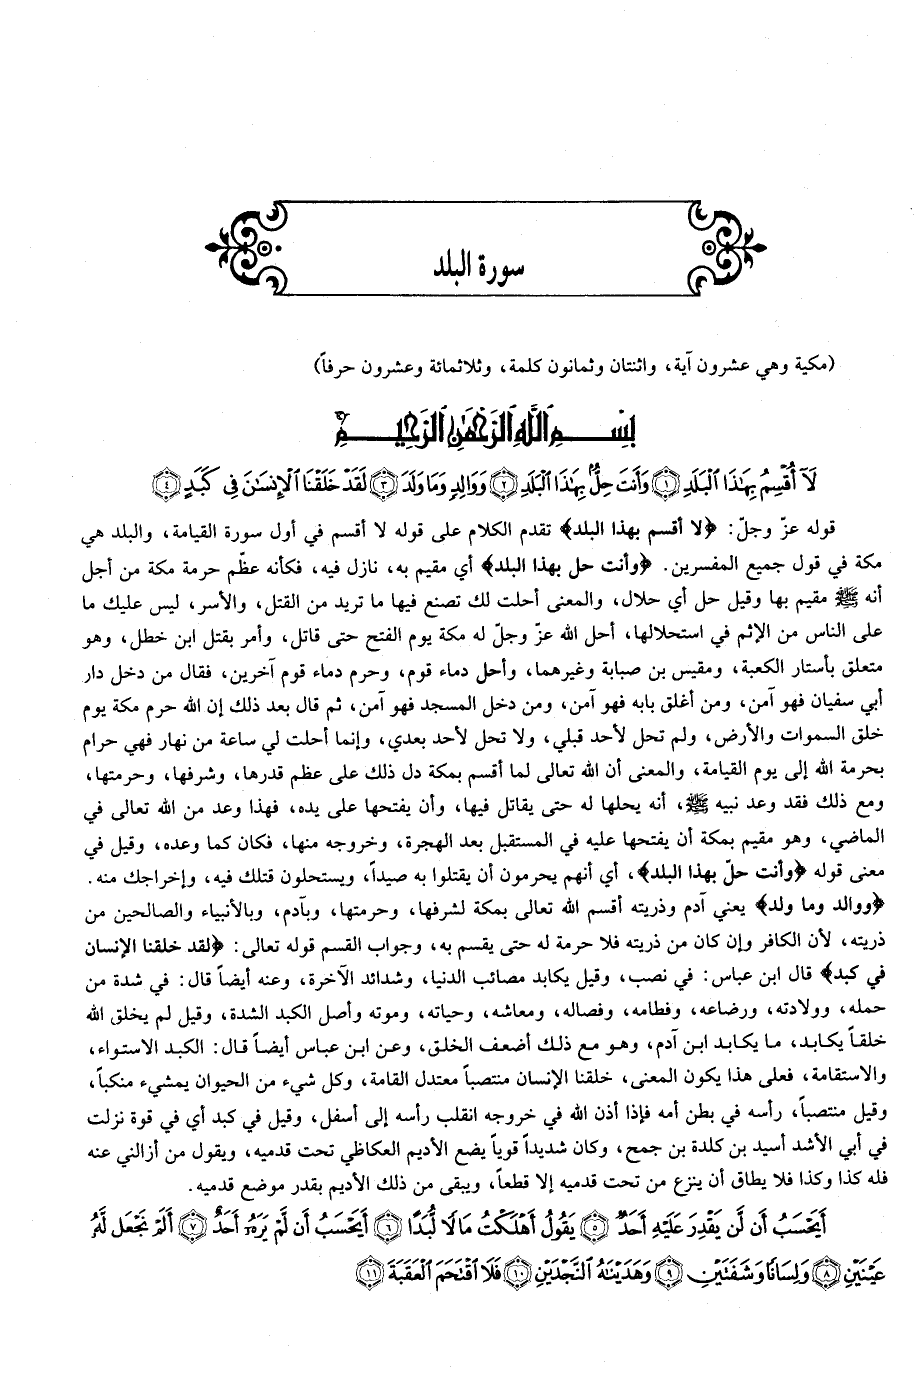 سورة البلد
(مكية وهي عشرون آية، واثنتان وثمانون كلمة، وثلاثمائة وعشرون حرفاً)
بِسْمِ اللَّهِ الرَّحْمَٰنِ الرَّحِيمِ
لَا أُقْسِمُ بِهَٰذَا الْبَلَدِ ﴿١﴾ وَأَنتَ حِلٌّ بِهَٰذَا الْبَلَدِ ﴿٢﴾ وَوَالِدٍ وَمَا وَلَدَ ﴿٣﴾ لَقَدْ خَلَقْنَا الْإِنسَانَ فِي كَبَدٍ ﴿٤﴾
قوله عزّ وجلّ: ﴿لا أقسم بهذا البلد﴾ تقدم الكلام على قوله لا أقسم في أول سورة القيامة، والبلد هي
مكة في قول جميع المفسرين. ﴿وأنت حل بهذا البلد﴾ أي مقيم به، نازل فيه، فكأنه عظّم حرمة مكة من أجل
أنه ﷺ مقيم بها وقيل حل أي حلال، والمعنى أحلت لك تصنع فيها ما تريد من القتل، والأسر، ليس عليك ما
على الناس من الإثم في استحلالها، أحل الله عزّ وجلّ له مكة يوم الفتح حتى قاتل، وأمر بقتل ابن خطل، وهو
متعلق بأستار الكعبة، ومقيس بن صبابة وغيرهما، وأحل دماء قوم، وحرم دماء قوم آخرين، فقال من دخل دار
أبي سفيان فهو آمن، ومن أغلق بابه فهو آمن، ومن دخل المسجد فهو آمن، ثم قال بعد ذلك إن الله حرم مكة يوم
خلق السموات والأرض، ولم تحل لأحد قبلي، ولا تحل لأحد بعدي، وإنما أحلت لي ساعة من نهار فهي حرام
بحرمة الله إلى يوم القيامة، والمعنى أن الله تعالى لما أقسم بمكة دل ذلك على عظم قدرها، وشرفها، وحرمتها،
ومع ذلك فقد وعد نبيه ﷺ، أنه يحلها له حتى يقاتل فيها، وأن يفتحها على يده، فهذا وعد من الله تعالى في
الماضي، وهو مقيم بمكة أن يفتحها عليه في المستقبل بعد الهجرة، وخروجه منها، فكان كما وعده، وقيل في
معنى قوله ﴿وأنت حلّ بهذا البلد﴾، أي أنهم يحرمون أن يقتلوا به صيداً، ويستحلون قتلك فيه، وإخراجك منه.
﴿ووالد وما ولد﴾ يعني آدم وذريته أقسم الله تعالى بمكة لشرفها، وحرمتها، وبآدم، وبالأنبياء والصالحين من
ذريته، لأن الكافر وإن كان من ذريته فلا حرمة له حتى يقسم به، وجواب القسم قوله تعالى: ﴿لقد خلقنا الإنسان
في كبد﴾ قال ابن عباس: في نصب، وقيل يكابد مصائب الدنيا، وشدائد الآخرة، وعنه أيضاً قال: في شدة من
حمله، وولادته، ورضاعه، وفطامه، وفصاله، ومعاشه، وحياته، وموته وأصل الكبد الشدة، وقيل لم يخلق الله
خلقاً يكابد، ما يكابد ابن آدم، وهو مع ذلك أضعف الخلق، وعن ابن عباس أيضاً قال: الكبد الاستواء،
والاستقامة، فعلى هذا يكون المعنى، خلقنا الإنسان منتصباً معتدل القامة، وكل شيء من الحيوان يمشيء منكباً،
وقيل منتصباً، رأسه في بطن أمه فإذا أذن الله في خروجه انقلب رأسه إلى أسفل، وقيل في كبد أي في قوة نزلت
في أبي الأشد أسيد بن كلدة بن جمح، وكان شديداً قوياً يضع الأديم العكاظي تحت قدميه، ويقول من أزالني عنه
فله كذا وكذا فلا يطاق أن ينزع من تحت قدميه إلا قطعاً، ويبقى من ذلك الأديم بقدر موضع قدميه.
أَيَحْسَبُ أَن لَّن يَقْدِرَ عَلَيْهِ أَحَدٌ ﴿٥﴾ يَقُولُ أَهْلَكْتُ مَالًا لُّبَدًا ﴿٦﴾ أَيَحْسَبُ أَن لَّمْ يَرَهُ أَحَدٌ ﴿٧﴾ أَلَمْ نَجْعَل لَّهُ
عَيْنَيْنِ ﴿٨﴾ وَلِسَانًا وَشَفَتَيْنِ ﴿٩﴾ وَهَدَيْنَاهُ النَّجْدَيْنِ ﴿١٠﴾ فَلَا اقْتَحَمَ الْعَقَبَةَ ﴿١١﴾